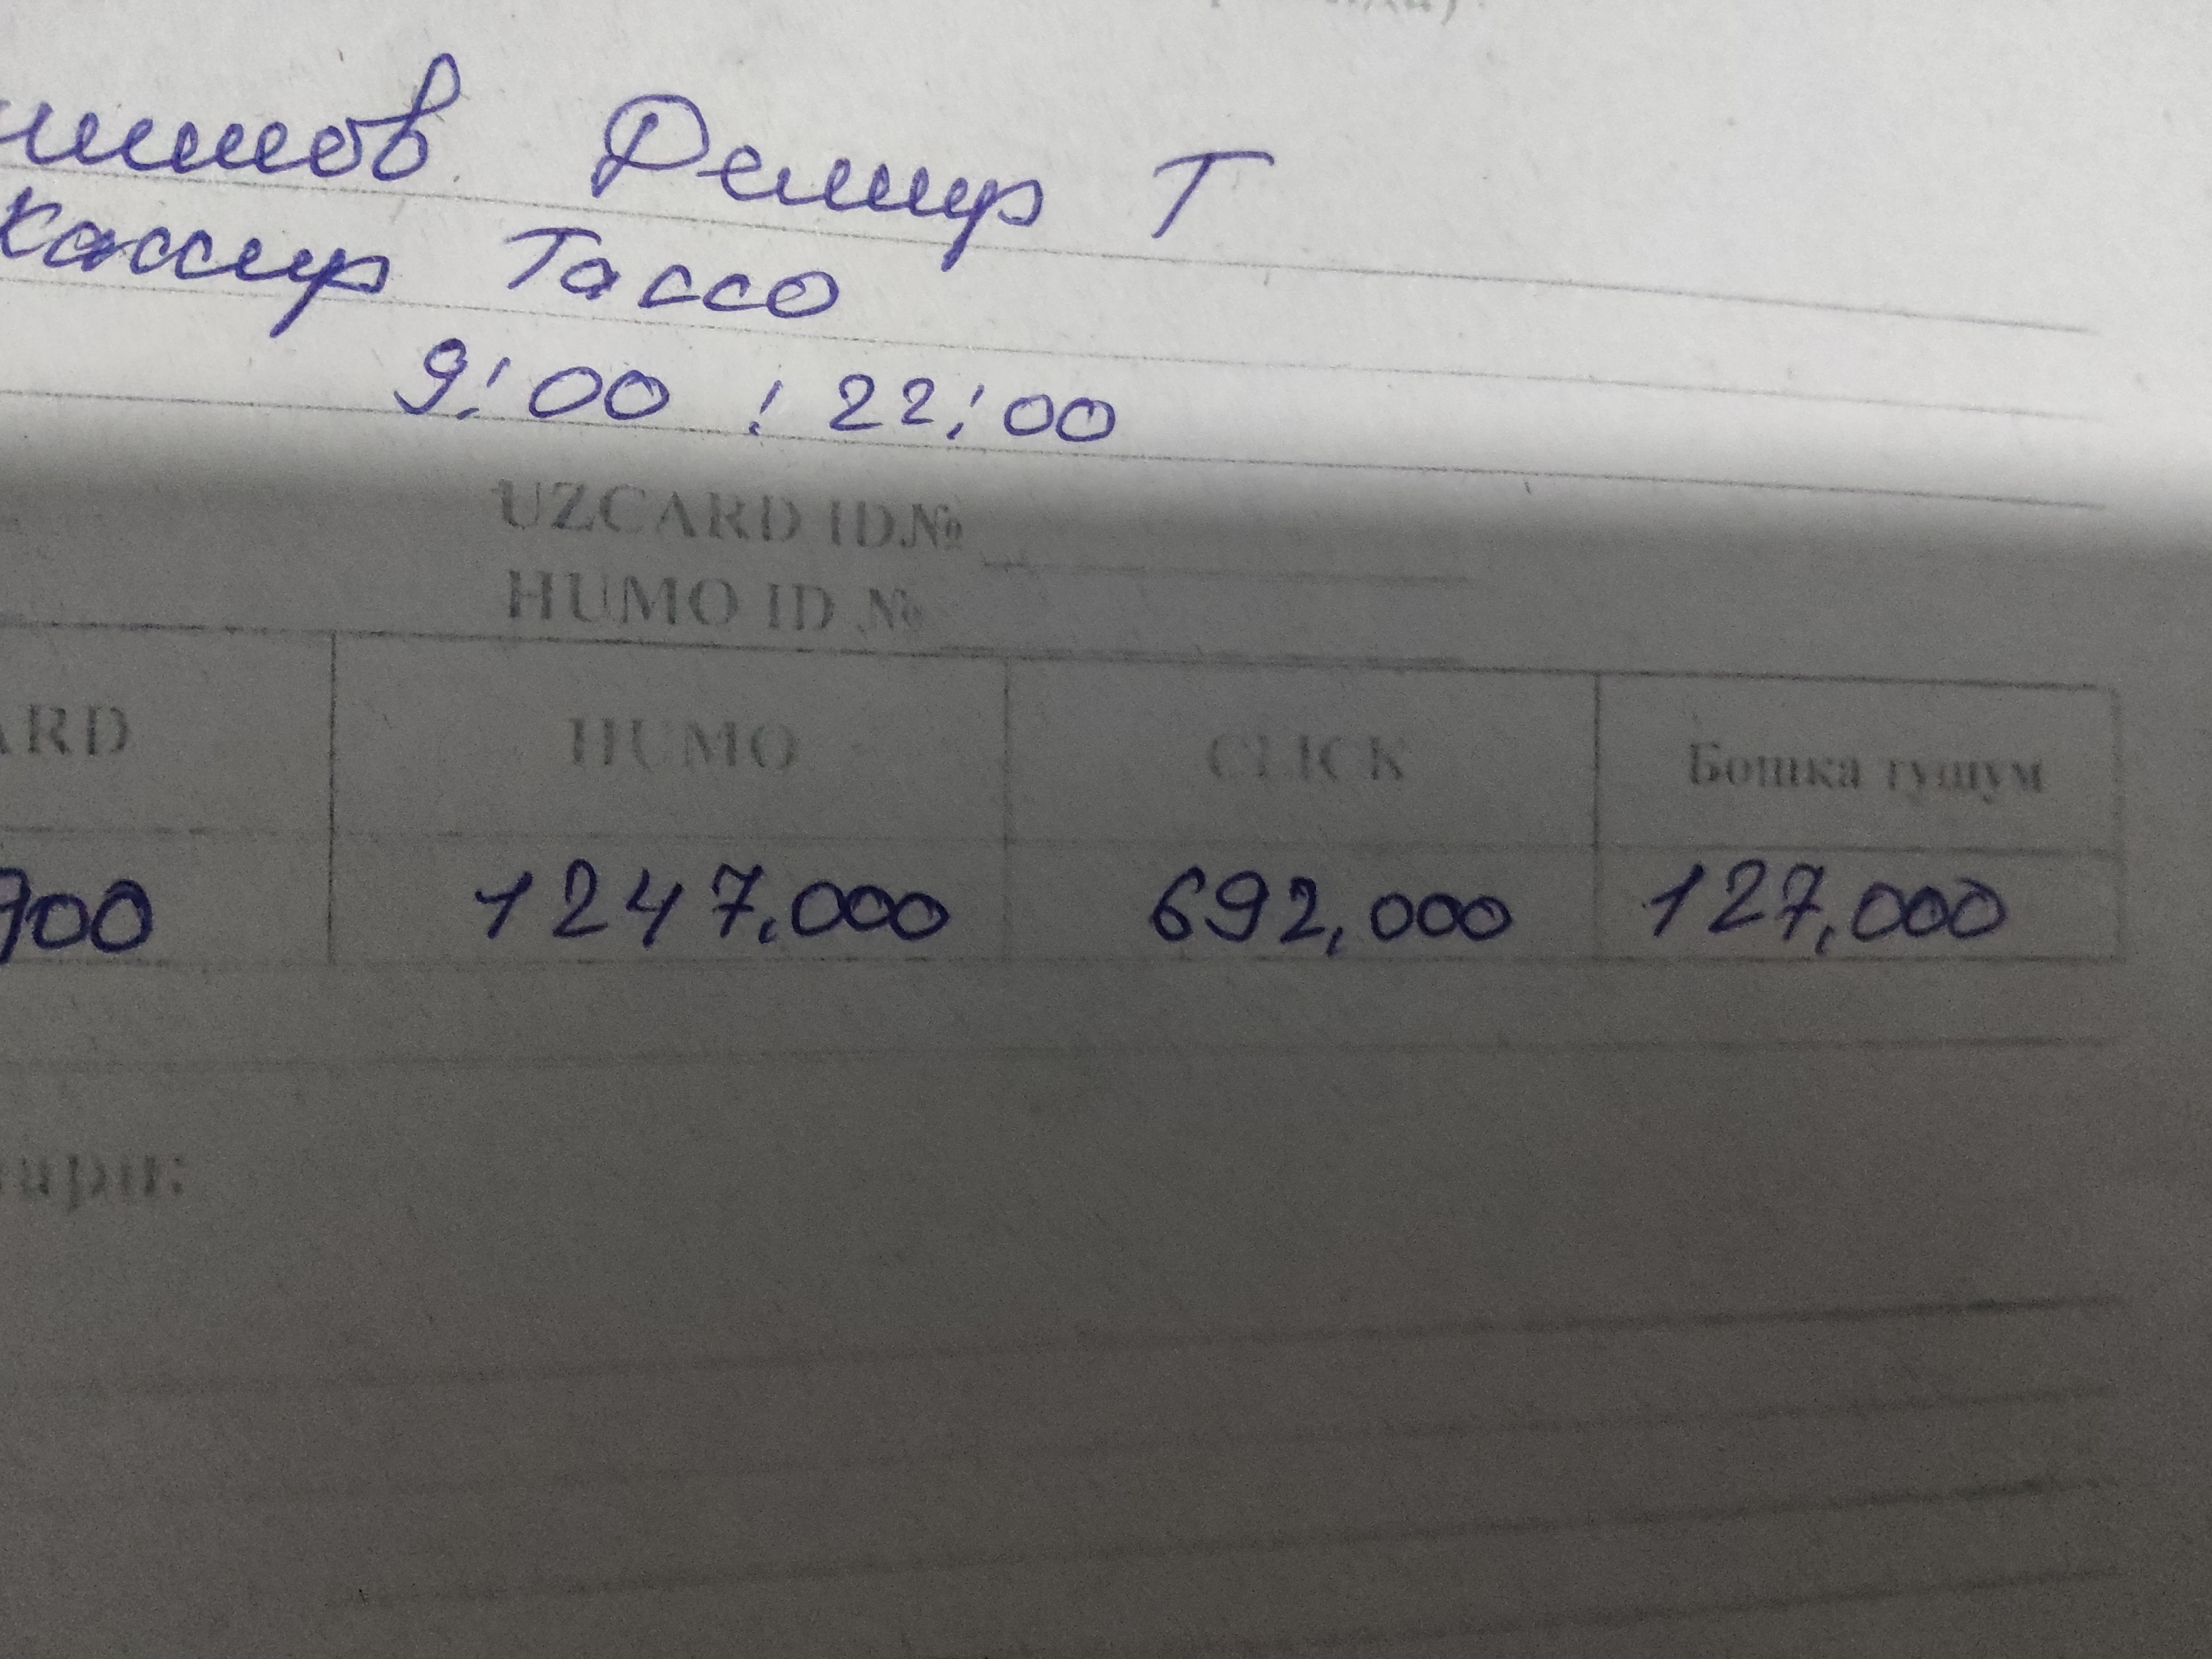 Демир Т
Кассир Тассо
9:00 : 22:00
UZCARD ID.№
HUMO ID №
ARD HUMO CLICK Бошка тушум
700 1247.000 692,000 127,000